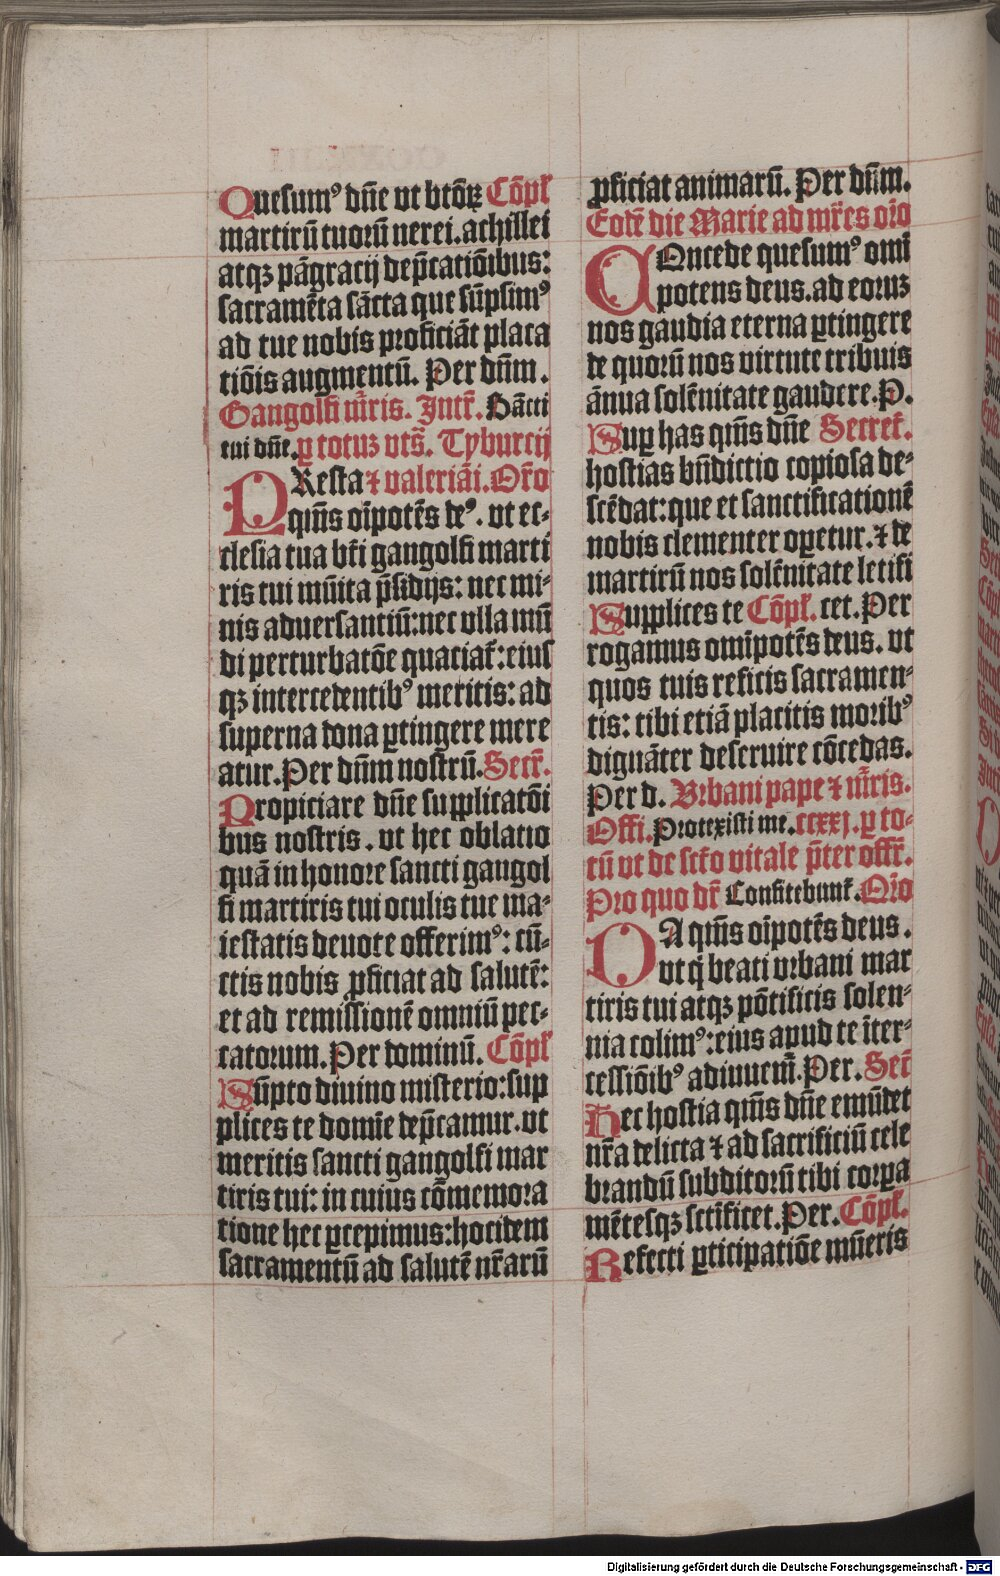 Quesumꝰ dn̄e vt btōꝝ Cōpl̓
martirū tuorū nerei. achillei
atqꝫ pāgracij dep̄catiōibus:
sacramēta sācta que sūpsimꝰ
ad tue nobis proficiāt placa
tiōis augmentū. Per dn̄m.
Gangolfi m̄ris. Intr̄. Sācti
tui dn̄e. ꝑ totuꝫ vts̄. Tyburcij
PResta ⁊ valeriāi. Or̄o
qm̄s oīpotēs deꝰ. vt ec-
clesia tua bt̄i gangolfi marti
ris tui mūita p̄sidijs: nec mi-
nis aduersantiū: nec vlla mū
di perturbatōe quaciat̄: eius
qꝫ intercedentibꝰ meritis: ad
superna dona ꝑtingere mere
atur. Per dn̄m nostrū. Secr̄.
Propiciare dn̄e supplicatōi
bus nostris. vt hec oblatio
quā in honore sancti gangol
fi martiris tui oculis tue ma-
iestatis deuote offerimꝰ: cū-
ctis nobis ꝓficiat ad salutē:
et ad remissionē omniū pec-
catorum. Per dominū. Cōpl̓
Sūpto diuino misterio: sup
plices te domīe dep̄camur. vt
meritis sancti gangolfi mar
tiris tui: in cuius cōmemora
tione hec ꝑcepimus: hoc idem
sacramentū ad salutē nr̄arū
ꝓficiat animarū. Per dn̄m.
Eodē die Marie ad mr̄es or̄o
COncede quesumꝰ omī
potens deus. ad eoruꝫ
nos gaudia eterna ꝑtingere
de quorū nos virtute tribuis
ānua solēnitate gaudere. P.
Suꝑ has qm̄s dn̄e Secret̄.
hostias bn̄dictio copiosa de-
scēdat: que et sanctificationē
nobis clementer oꝑetur. ⁊ de
martirū nos solēnitate letifi
Supplices te Cōpl̓. cet. Per
rogamus omīpotēs deus. vt
quos tuis reficis sacramen-
tis: tibi etiā placitis moribꝰ
dignāter deseruire cōcedas.
Per d. Vrbani pape ⁊ m̄ris.
Offi. Protexisti me. ccxxj. ꝑ to-
tū vt de scto vitale p̄ter offr̄.
Pro quo dr̄ Confitebunt̄. Or̄o
DA qm̄s oīpotēs deus.
vt q̄ beati vrbani mar
tiris tui atqꝫ pōtificis solen-
nia colimꝰ: eius apud te īter-
cessiōibꝰ adiuuem̄. Per. Sec̄
Hec hostia qm̄s dn̄e emūdet
nr̄a delicta ⁊ ad sacrificiū cele
brandū subditorū tibi corꝑa
mētesqꝫ sctīficet. Per. Cōpl̓.
Refecti ꝑticipatiōe mūeris
Digitalisierung gefördert durch die Deutsche Forschungsgemeinschaft - DFG